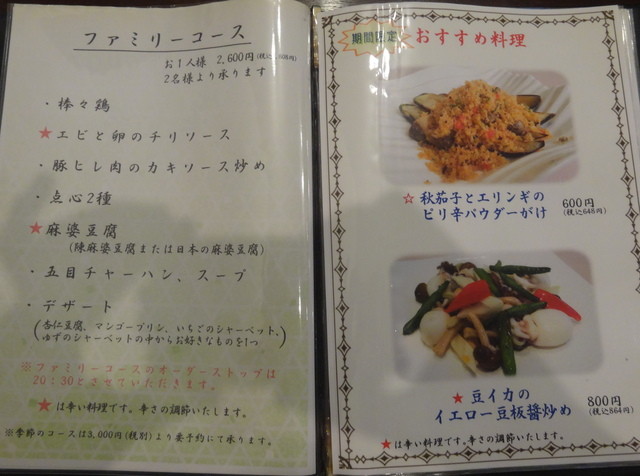 ファミリーコース
お1人様 2,600円(税込2,808円)
2名様より承ります
・棒々鶏
★エビと卵のチリソース
・豚ヒレ肉のカキソース炒め
・点心2種
★麻婆豆腐
(陳麻婆豆腐または日本の麻婆豆腐)
・五目チャーハン、スープ
・デザート
(杏仁豆腐、マンゴープリン、いちごのシャーベット、
ゆずのシャーベットの中からお好きなものを1つ)
※ファミリーコースのオーダーストップは
20:30とさせていただきます。
★は辛い料理です。辛さの調節いたします。
※季節のコースは3,000円(税別)より要予約にて承ります。
期間限定 おすすめ料理
☆秋茄子とエリンギの
ピリ辛パウダーがけ 600円
(税込648円)
★豆イカの
イエロー豆板醤炒め 800円
(税込864円)
★は辛い料理です。辛さの調節いたします。